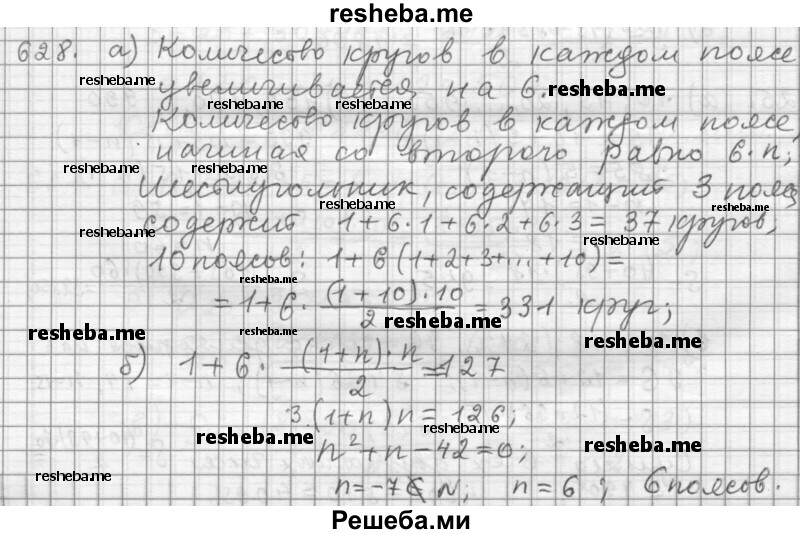 resheba.me
628. а) Количество кругов в каждом поясе
resheba.me
увеличивается на 6. resheba.me
resheba.me resheba.me
Количество кругов в каждом поясе,
начиная со второго равно 6·n;
resheba.me resheba.me
Шестиугольник, содержащий 3 пояса
resheba.me resheba.me
содержит 1+6·1+6·2+6·3=37 кругов,
resheba.me resheba.me
10 поясов: 1+6(1+2+3+...+10)=
resheba.me
= 1+6· (1+10)·10 / 2 = 331 круг;
resheba.me resheba.me resheba.me resheba.me
б) 1+6· (1+n)·n / 2 = 127
3·(1+n)n = 126;
resheba.me resheba.me resheba.me
n²+n-42=0;
resheba.me
n=-7∉N; n=6; 6 поясов.
Решеба.ми